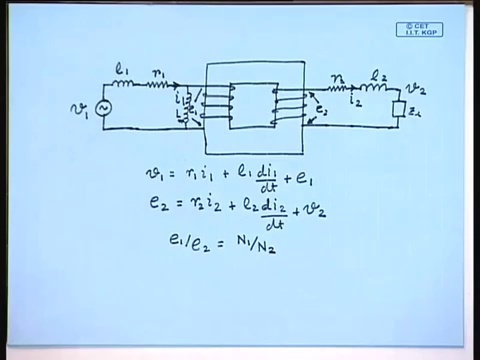 © CET
I.I.T. KGP
l₁ r₁ r₂ l₂
v₁ i₁ e₁ e₂ i₂ v₂
v₁ = r₁i₁ + l₁ di₁/dt + e₁
e₂ = r₂i₂ + l₂ di₂/dt + v₂
e₁/e₂ = N₁/N₂